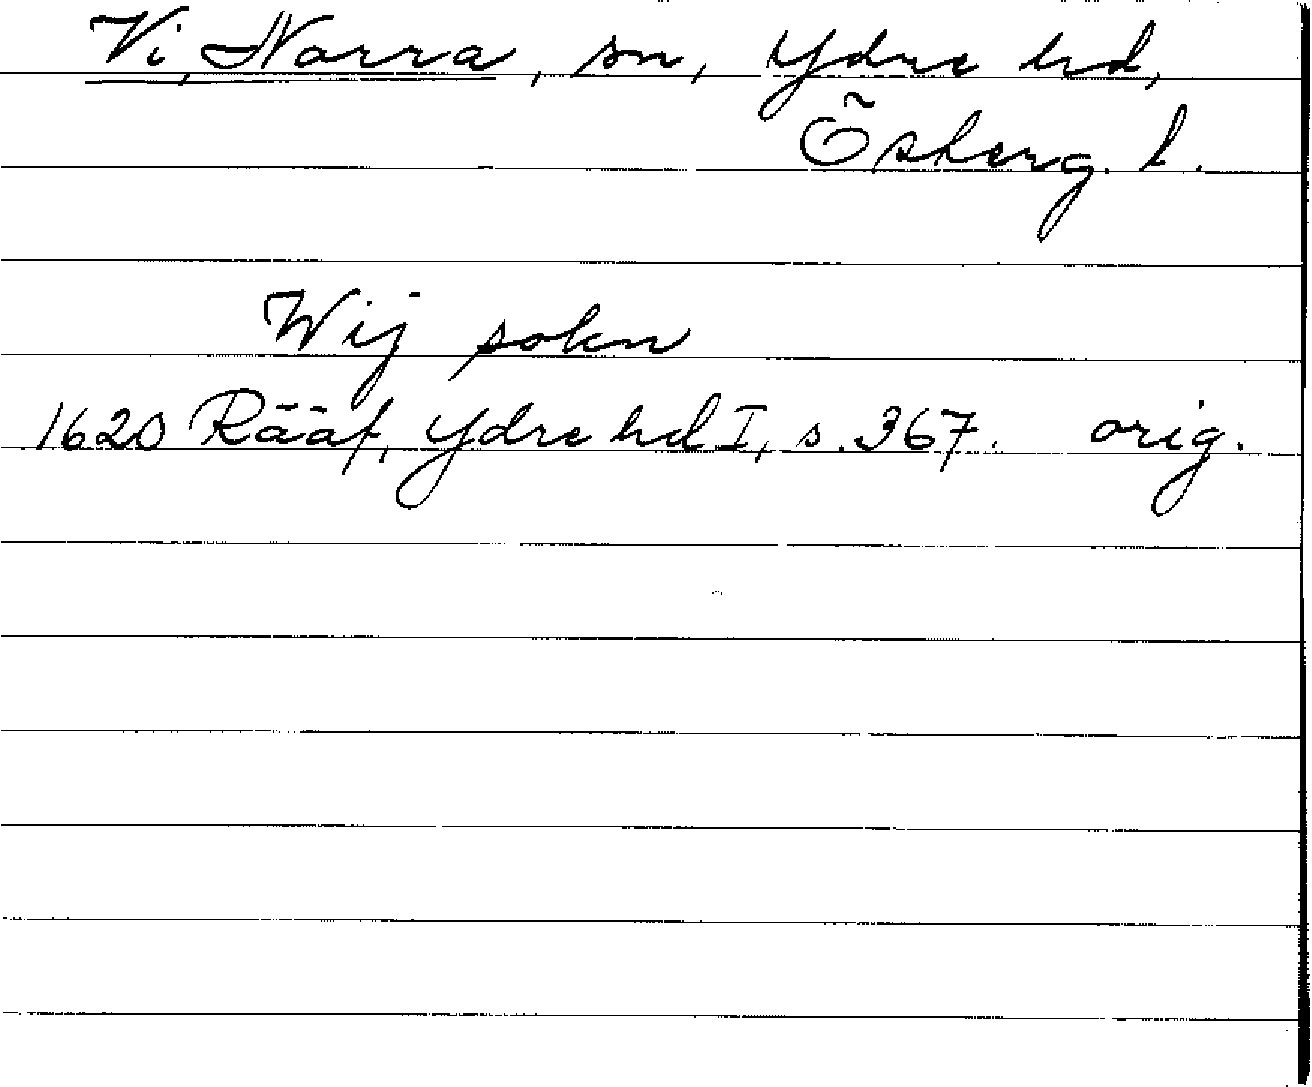 Vi, Norra, sn, Ydre hd,
Österg·l.
Wij sokn
1620 Rääf, Ydre hd I, s.367. orig.